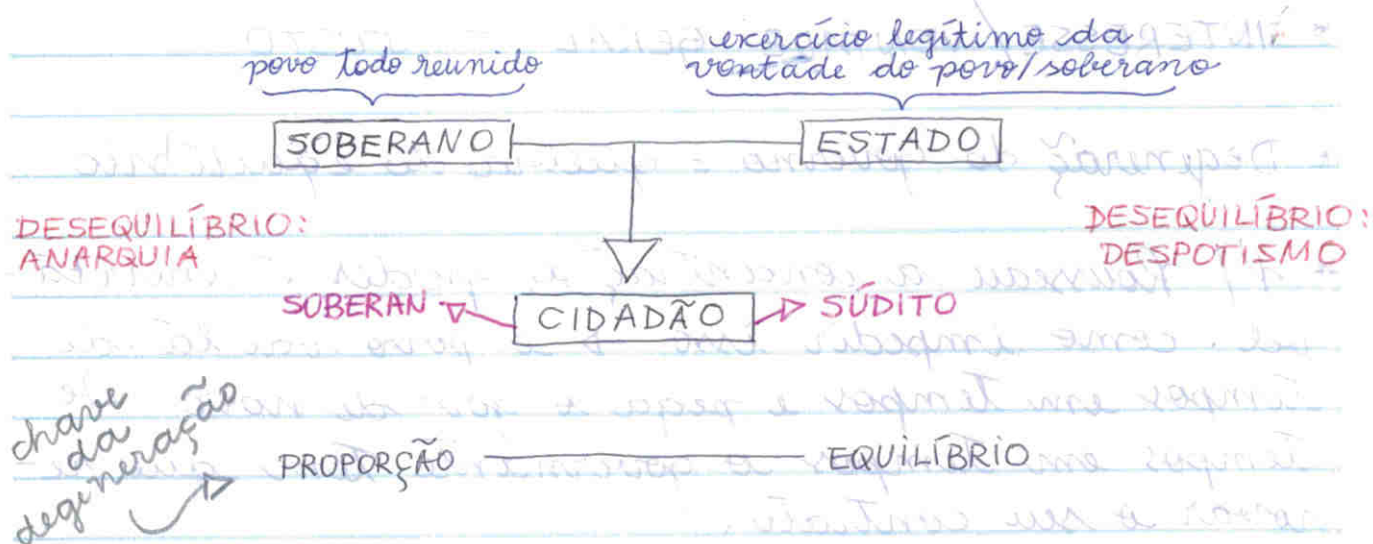 povo todo reunido
exercício legítimo da
vontade do povo/soberano
SOBERANO
ESTADO
DESEQUILÍBRIO:
ANARQUIA
DESEQUILÍBRIO:
DESPOTISMO
SOBERAN
CIDADÃO
SÚDITO
chave
da
degeneração
PROPORÇÃO
EQUILÍBRIO